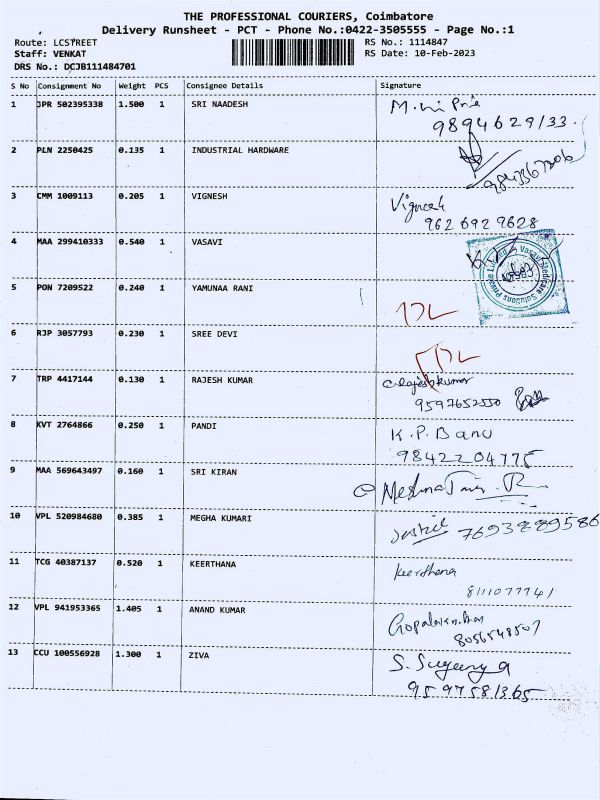 THE PROFESSIONAL COURIERS, Coimbatore
Delivery Runsheet - PCT - Phone No.:0422-3505555 - Page No.:1
Route: LCSTREET RS No.: 1114847
Staff: VENKAT RS Date: 10-Feb-2023
DRS No.: DCJB111484701
S No Consignment No Weight PCS Consignee Details Signature
1 JPR 502395338 1.500 1 SRI NAADESH
9894629133
2 PLN 2250425 0.135 1 INDUSTRIAL HARDWARE
3 CMM 1009113 0.205 1 VIGNESH Vignesh
962 692 9628
4 MAA 299410333 0.540 1 VASAVI
5 PON 7209522 0.240 1 YAMUNAA RANI
6 RJP 3057793 0.230 1 SREE DEVI
7 TRP 4417144 0.130 1 RAJESH KUMAR
9597652550
8 KVT 2764866 0.250 1 PANDI K.P. Banu
9842204775
9 MAA 569643497 0.160 1 SRI KIRAN
10 VPL 520984680 0.385 1 MEGHA KUMARI 7693889586
11 TCG 40387137 0.520 1 KEERTHANA keerthana
8111077741
12 VPL 941953365 1.405 1 ANAND KUMAR
8056548507
13 CCU 100556928 1.300 1 ZIVA
9597581365